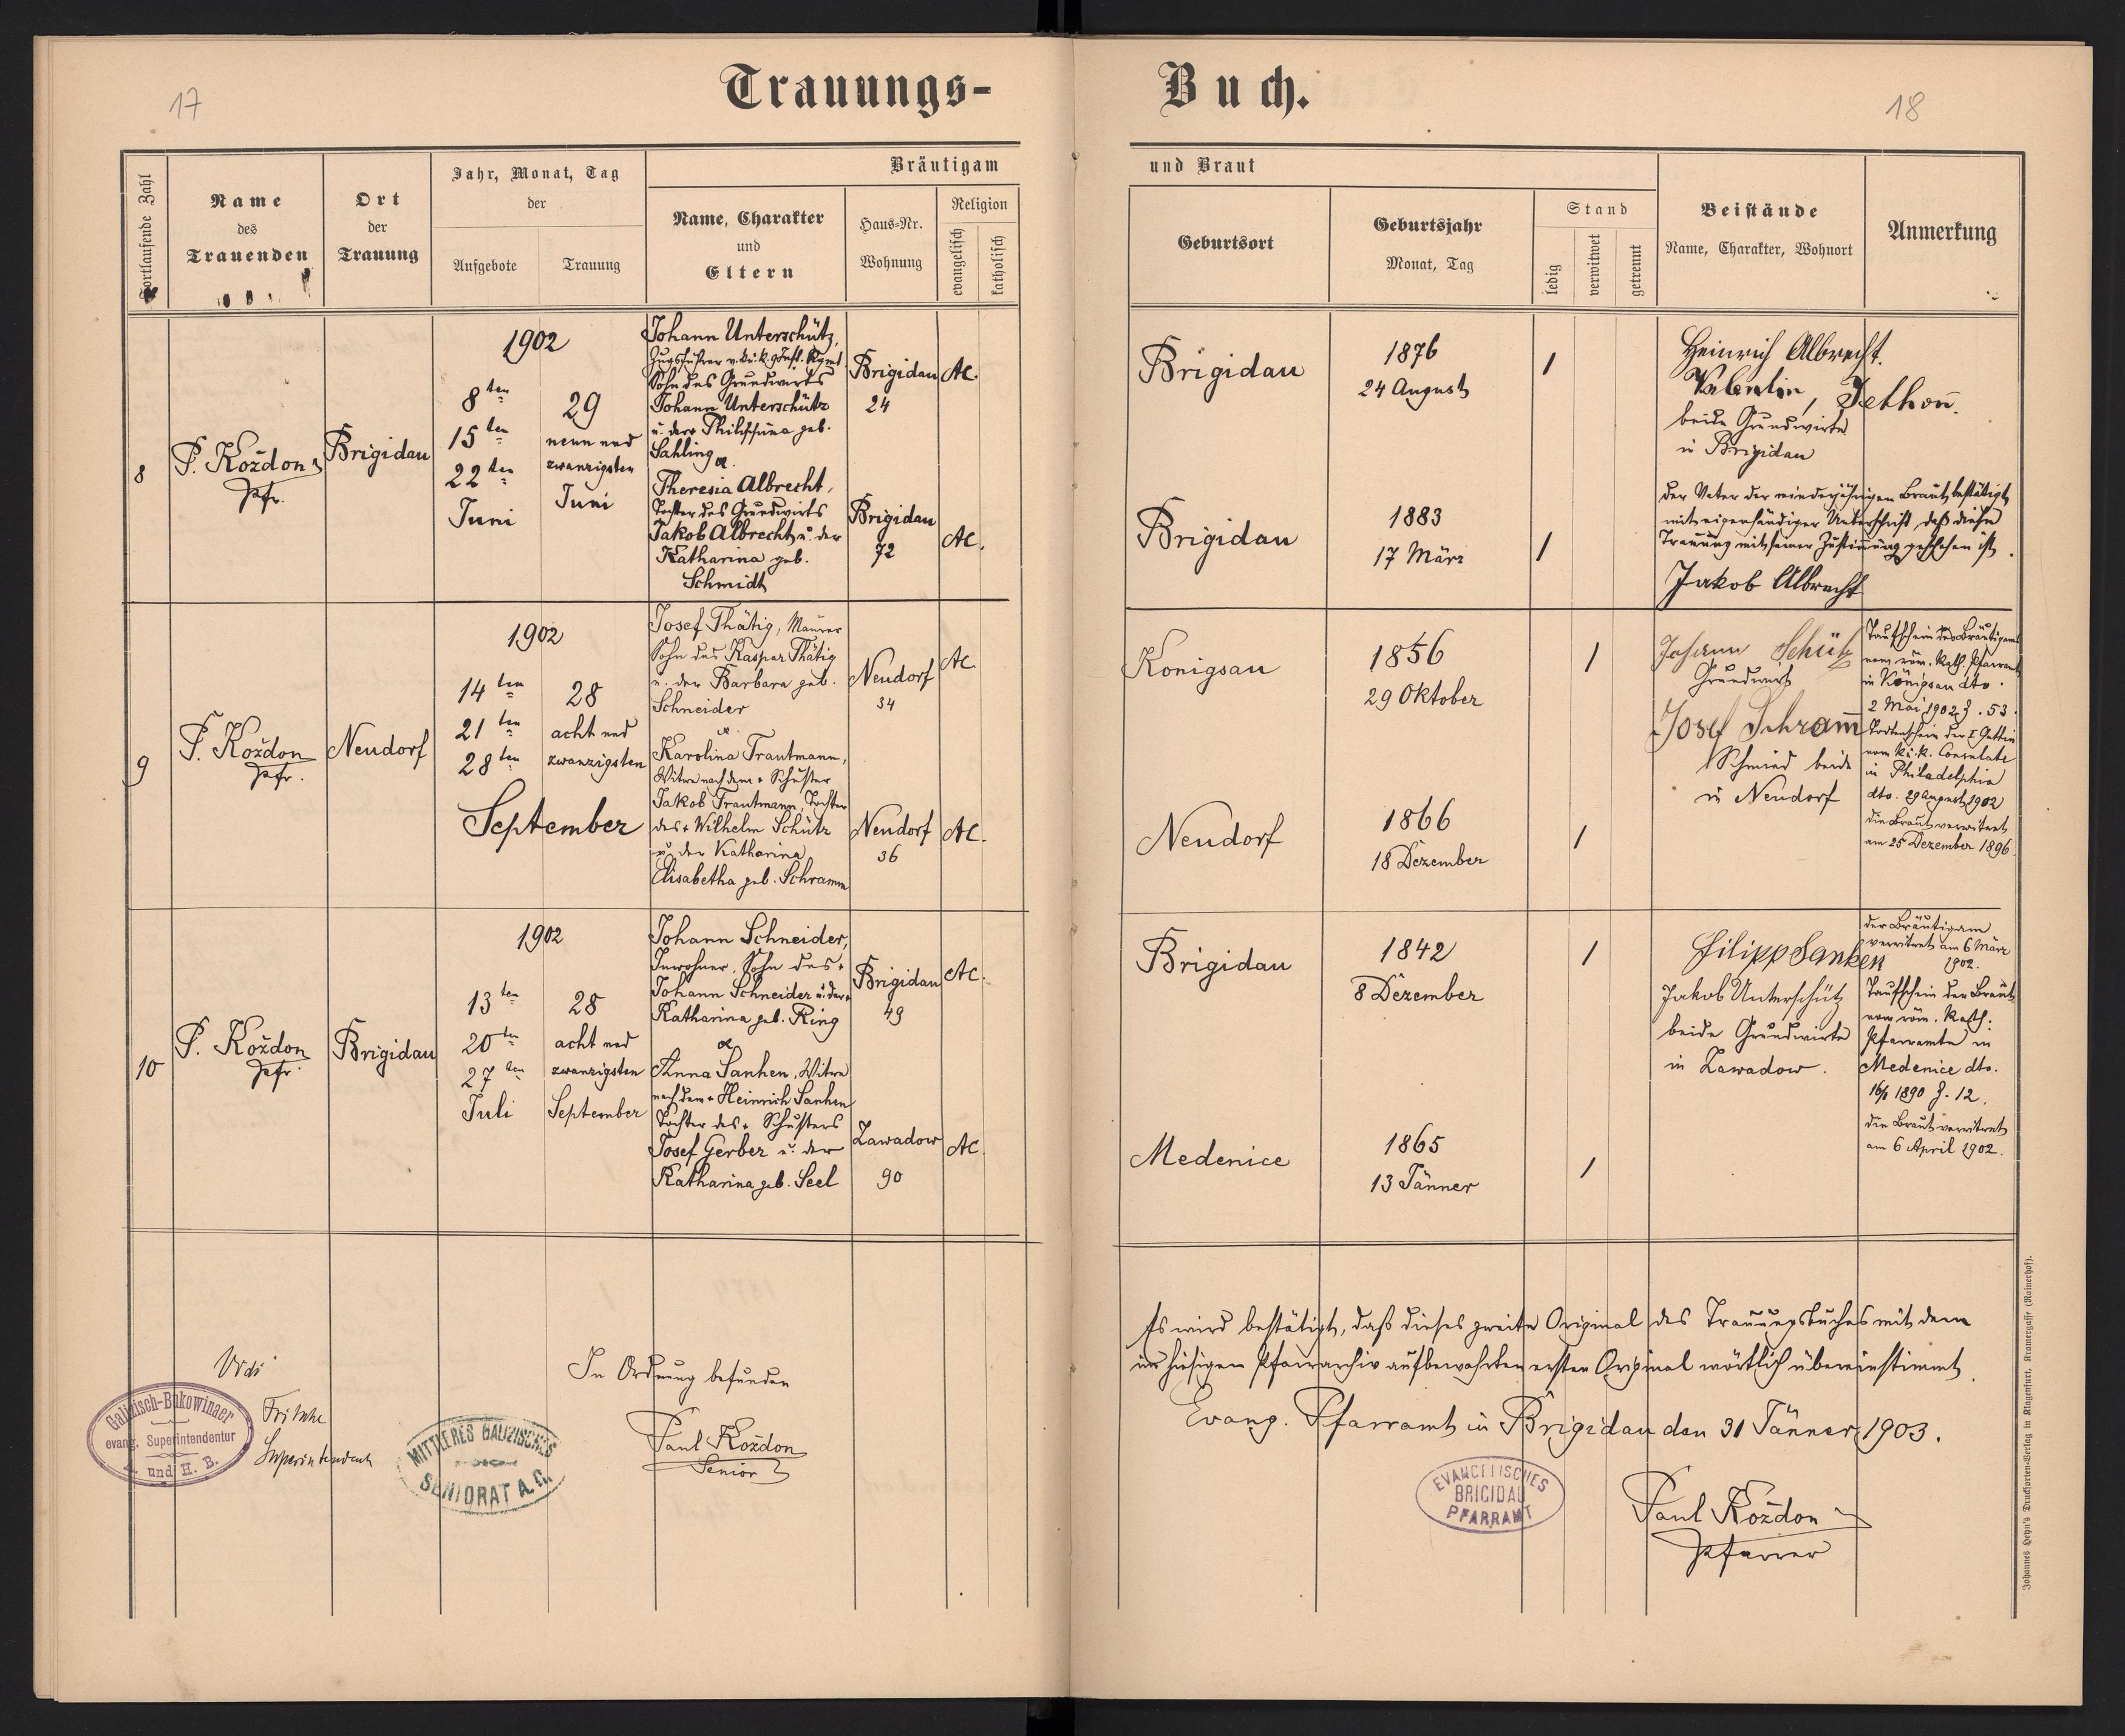 17
Trauungs-
Fortlaufende Zahl
Name
des
Trauenden
Ort
der
Trauung
Jahr, Monat, Tag
der
Aufgebote
Trauung
Bräutigam
Name, Charakter
und
Eltern
Haus-Nr.
Wohnung
Religion
evangelisch
katholisch
8
P. Kożdon
Pfr.
Brigidau
1902
8ten
15ten
22ten
Juni
29
neun und
zwanzigsten
Juni
Johann Unterschütz,
Zugsführer v. k. u. k. 9 Inft. Rgmt.
Sohn des Grundwirts
Johann Unterschütz
u. der Philippina geb.
Sahling
&
Theresia Albrecht,
Tochter des Grundwirts
Jakob Albrecht u. der
Katharina geb.
Schmidt
Brigidau
24
AC.
Brigidau
72
AC.
9
P. Kożdon
Pfr.
Neudorf
1902
14ten
21ten
28ten
September
28
acht und
zwanzigsten
Josef Thätig, Maurer
Sohn des Kaspar Thätig
u. der Barbara geb.
Schneider
&
Karolina Trautmann,
Witwe nach dem + Schuster
Jakob Trautmann, Tochter
des + Wilhelm Schütz
u. der Katharina
Elisabetha geb. Schramm
Neudorf
34
AC.
Neudorf
36
AC.
10
P. Kożdon
Pfr.
Brigidau
1902
13ten
20ten
27ten
Juli
28
acht und
zwanzigsten
September
Johann Schneider,
Inwohner, Sohn des +
Johann Schneider u. der +
Katharina geb. Ring
&
Anna Sanken, Witwe
nach dem + Heinrich Sanken
Tochter des + Schusters
Josef Gerber u. der
Katharina geb. Seel
Brigidau
49
AC.
Zawadow
90
AC.
Vidi
Galizisch-Bukowinaer
evang. Superintendentur
A. und H. B.
Fritsche
Superintendent
MITTLERES GALIZISCHES
SENIORAT A.C.
In Ordnung befunden
Paul Kożdon
Senior
Buch.
18
und Braut
Geburtsort
Geburtsjahr
Monat, Tag
Stand
ledig
verwitwet
getrennt
Beistände
Name, Charakter, Wohnort
Anmerkung
Brigidau
1876
24 August
/
Heinrich Albrecht.
Valentin, Jethon.
beide Grundwirte
in Brigidau
Brigidau
1883
17 März
/
der Vater der minderjährigen Braut bestätigt
mit eigenhändiger Unterschrift, daß diese
Trauung mit seiner Zustimmung geschehen ist.
Jakob Albrecht
Königsau
1856
29 Oktober
/
Johann Schütz
Grundwirt
Josef Schram̄
Schmied beide
in Neudorf
Taufschein des Bräutigams
vom röm. kath. Pfarramt
in Königsau dto.
2 Mai 1902 Z. 53.
Todtenschein der I Gattin
vom k. u. k. Consulate
in Philadelphia
dto. 29 August 1902
die Braut verwitwet
am 25 Dezember 1896
Neudorf
1866
18 Dezember
/
Brigidau
1842
8 Dezember
/
Filipp Sanken
Jakob Unterschütz
beide Grundwirte
in Zawadow.
der Bräutigam
verwitwet am 6 März
1902.
Taufschein der Braut
vom röm. kath:
Pfarramte in
Medenice dto.
16/1 1890 Z. 12.
die Braut verwitwet
am 6 April 1902.
Medenice
1865
13 Jänner
/
Es wird bestätigt, daß dieses zweite Original des Trauungsbuches mit dem
im hiesigen Pfarrarchiv aufbewahrten ersten Original wörtlich übereinstimmt.
Evang. Pfarramt in Brigidau den 31 Jänner 1903.
EVANGELISCHES
BRIGIDAU
PFARRAMT
Paul Kożdon
Pfarrer
Johannes Heyn's Drucksorten-Verlag in Klagenfurt, Kramergasse (Rainerhof).